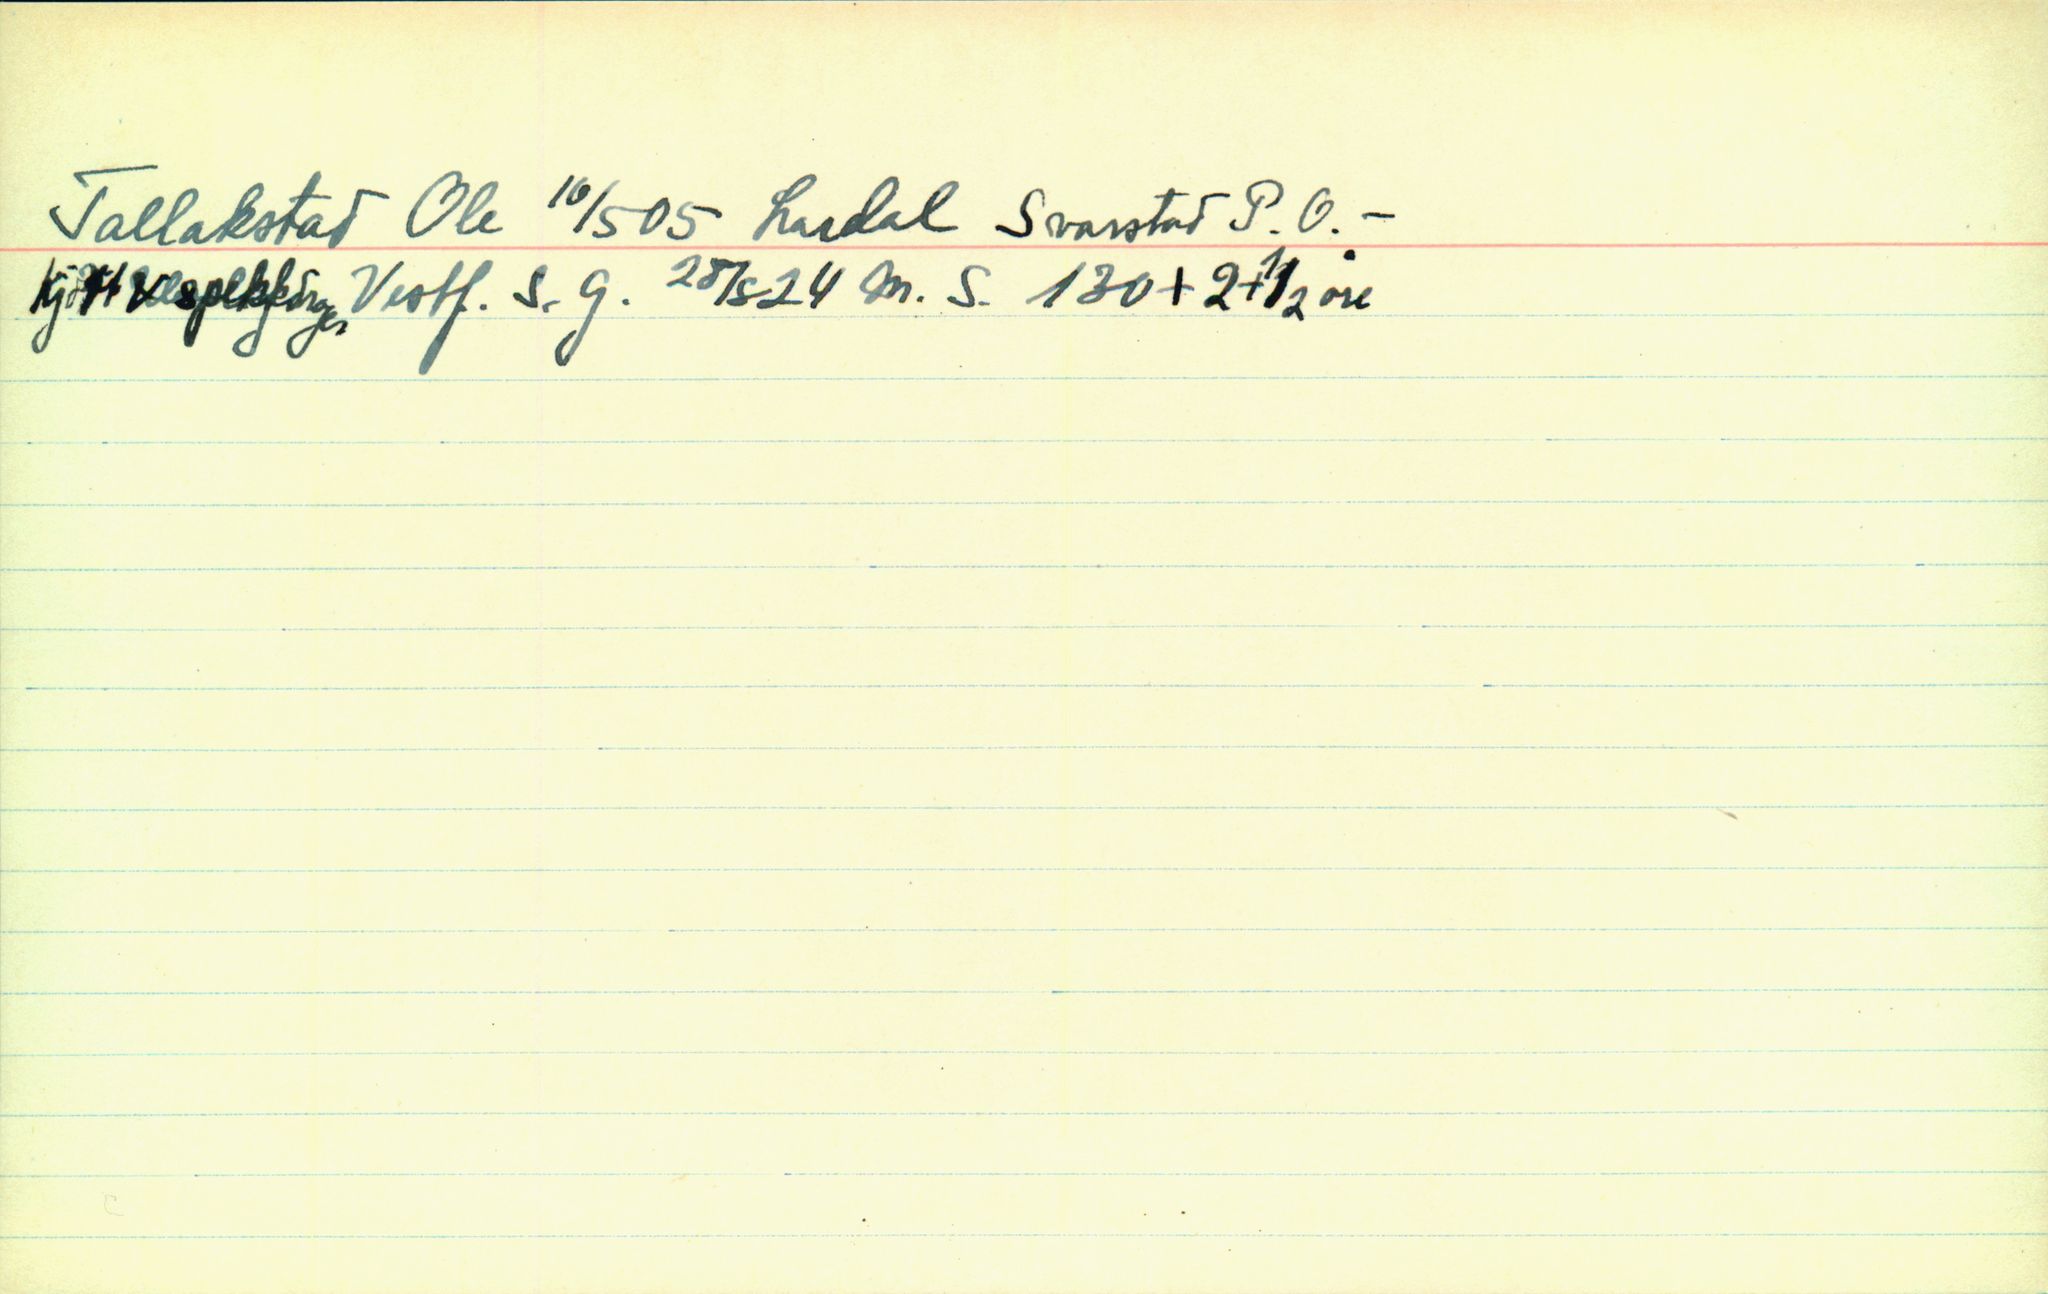 Tallakstad Ole 10/5 05 Lardal Svarstad P.O. -
Vestf. S. G. 28/5 24 M. S. 130 + 2 + 1/2 øre